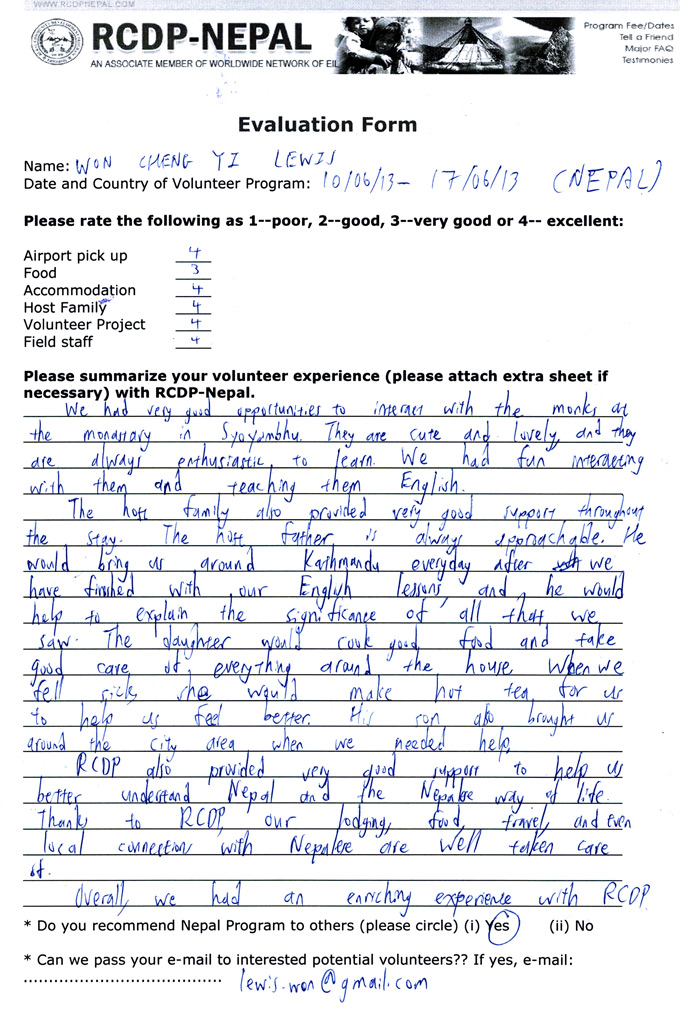 WWW.RCDPNEPAL.COM
RCDP-NEPAL
AN ASSOCIATE MEMBER OF WORLDWIDE NETWORK OF EIL
Program Fee/Dates
Tell a Friend
Major FAQ
Testimonies
Evaluation Form
Name: WON CHENG YI LEWIS
Date and Country of Volunteer Program: 10/06/13 - 17/06/13 (NEPAL)
Please rate the following as 1--poor, 2--good, 3--very good or 4-- excellent:
Airport pick up 4
Food 3
Accommodation 4
Host Family 4
Volunteer Project 4
Field staff 4
Please summarize your volunteer experience (please attach extra sheet if
necessary) with RCDP-Nepal.
We had very good opportunities to interact with the monks at
the monastary in Syoyambhu. They are cute and lovely, and they
are always enthusiastic to learn. We had fun interacting
with them and teaching them English.
The host family also provided very good support throughout
the stay. The host father is always approachable. He
would bring us around Kathmandu everyday after we
have finished with our English lessons, and he would
help to explain the significance of all that we
saw. The daughter would cook good food and take
good care of everything around the house. When we
fell sick, she would make hot tea for us
to help us feel better. His son also brought us
around the city area when we needed help.
RCDP also provided very good support to help us
better understand Nepal and the Nepalese way of life.
Thanks to RCDP, our lodging, food, travel, and even
local connection with Nepalese are well taken care
of.
Overall, we had an enriching experience with RCDP.
* Do you recommend Nepal Program to others (please circle) (i) Yes (ii) No
* Can we pass your e-mail to interested potential volunteers?? If yes, e-mail:
...................................... lewis.won@gmail.com